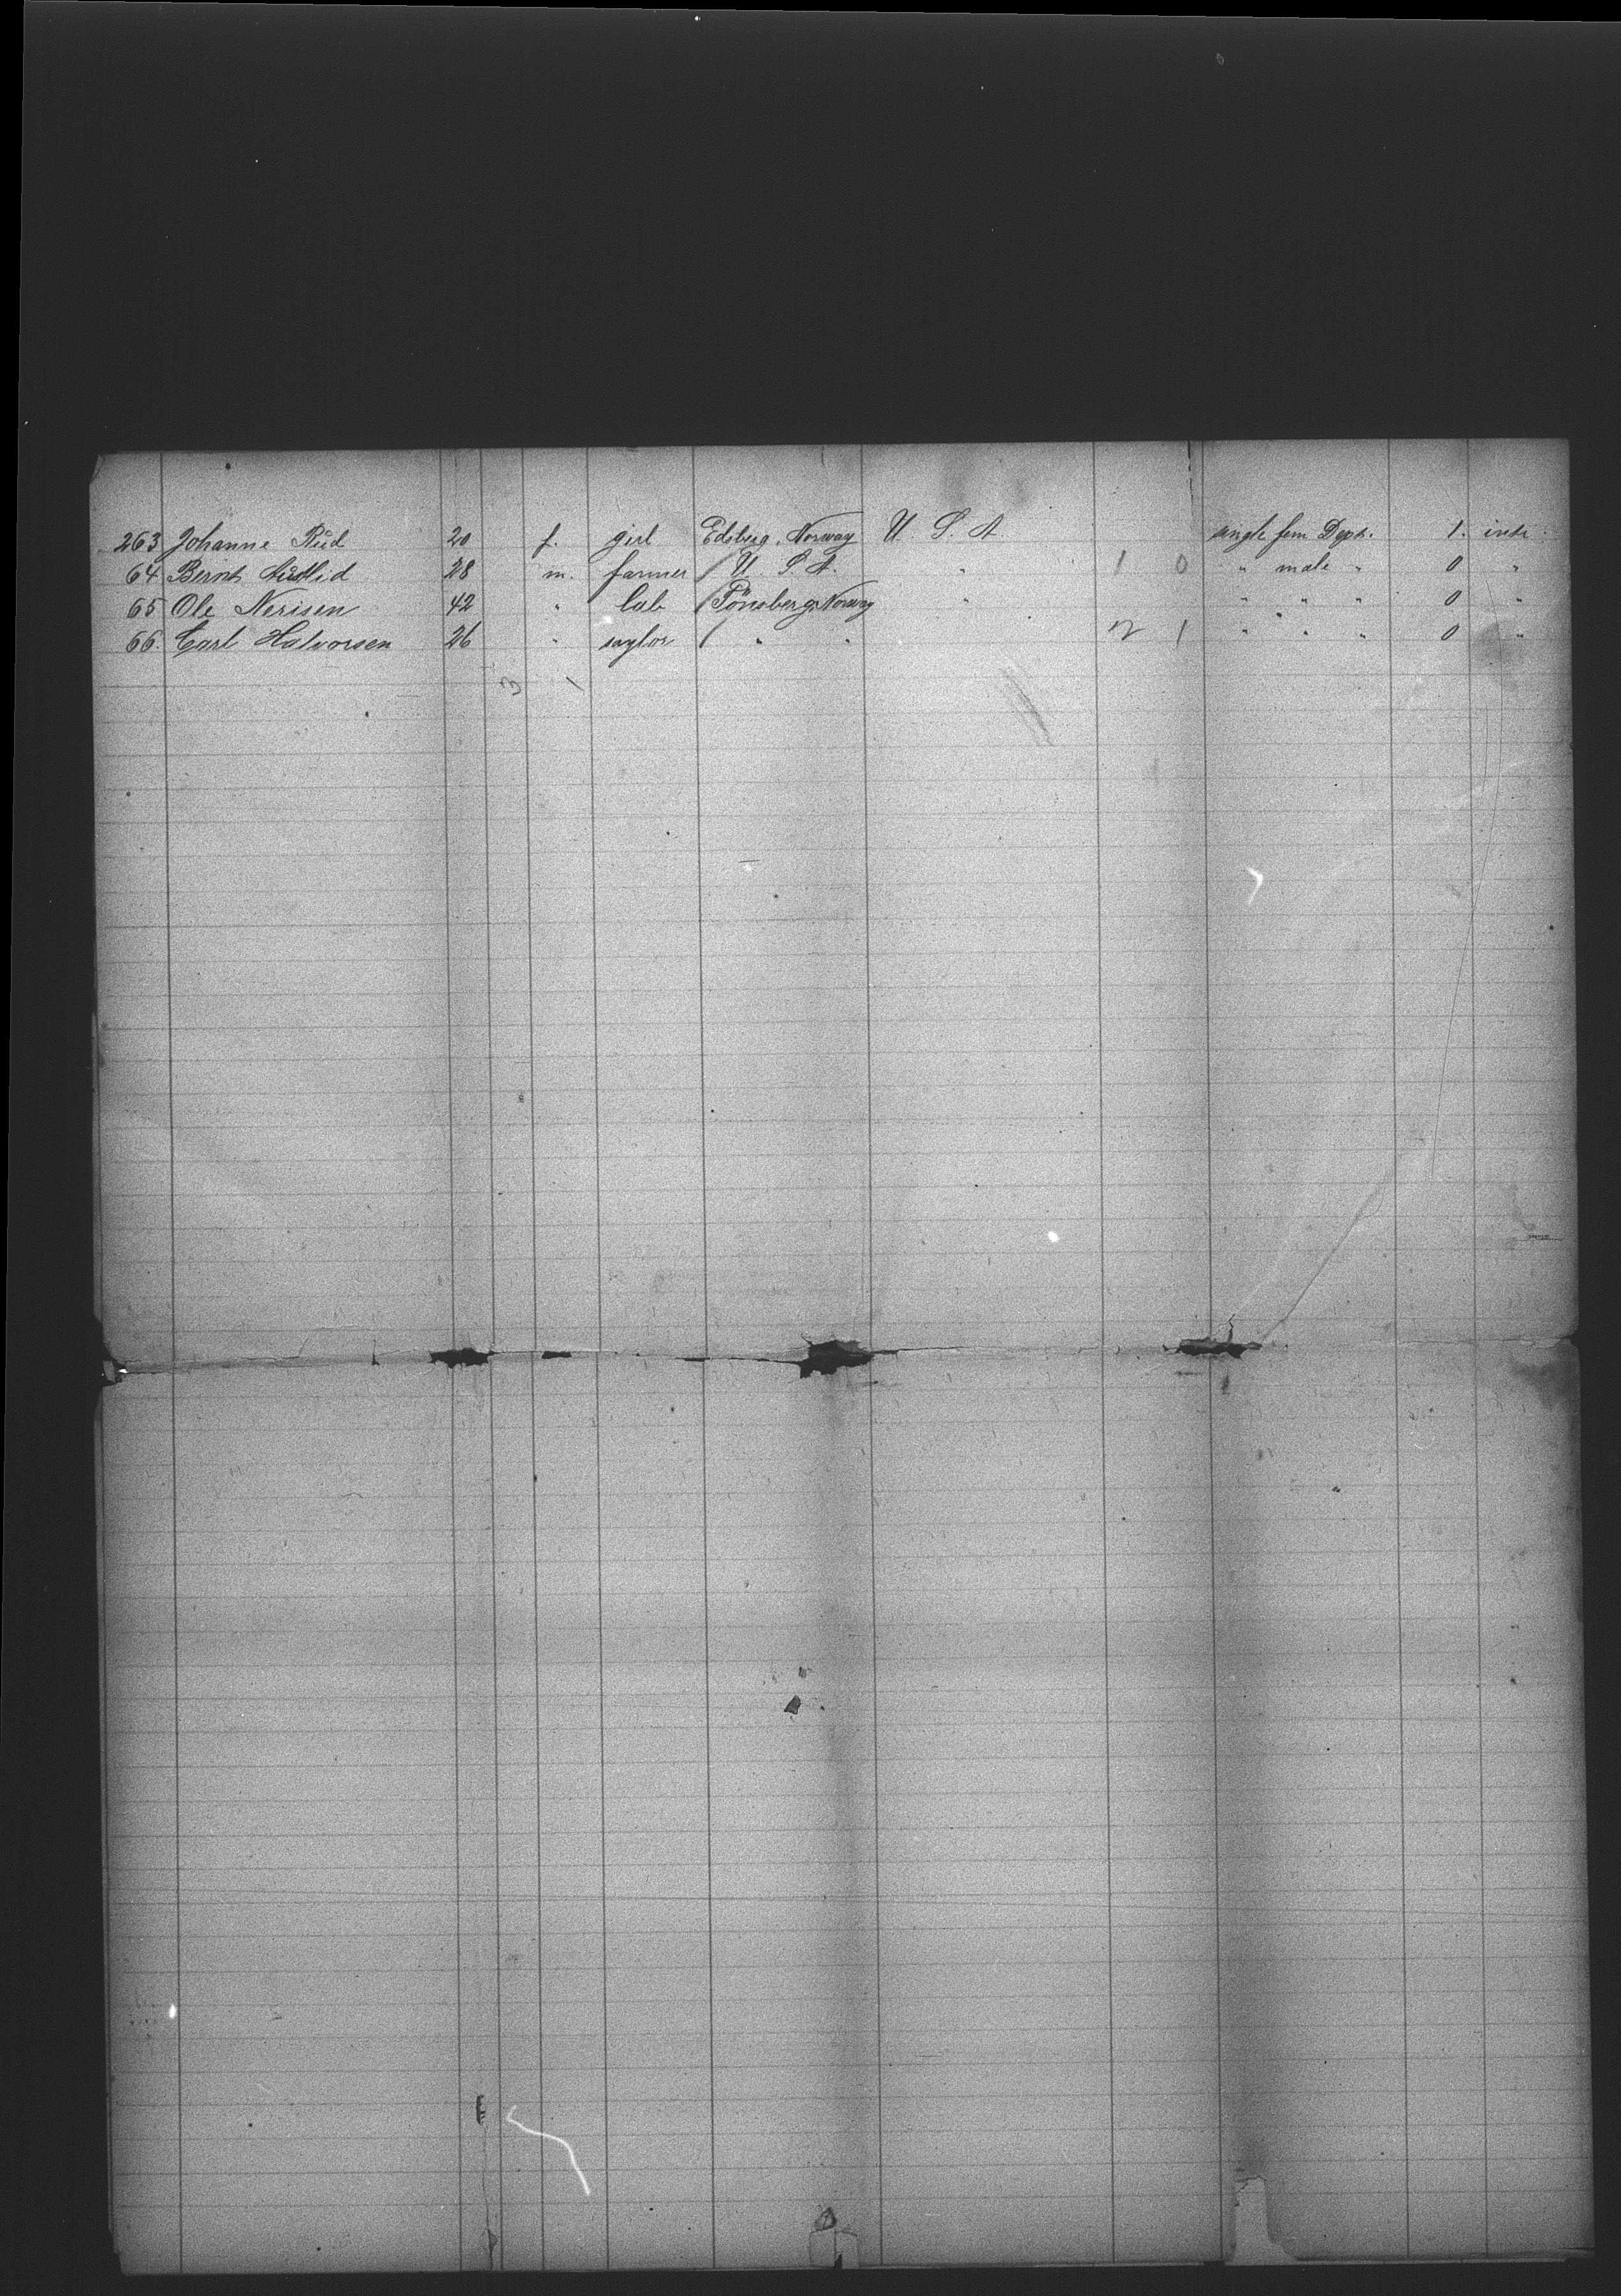 263 Johanne Rŭd 20 f. girl Edsberg, Norway U. S. A. single fem Dept. 1. intr.
64 Bernt 28 m. farmer U. S. A. " 1 0 " male " 0 "
65 Ole Nerisen 42 " lab Tönsberg, Norway " " " " 0 "
66. Carl Halvorsen 26 " saylor " " 2 1 " " " 0 "
3 1